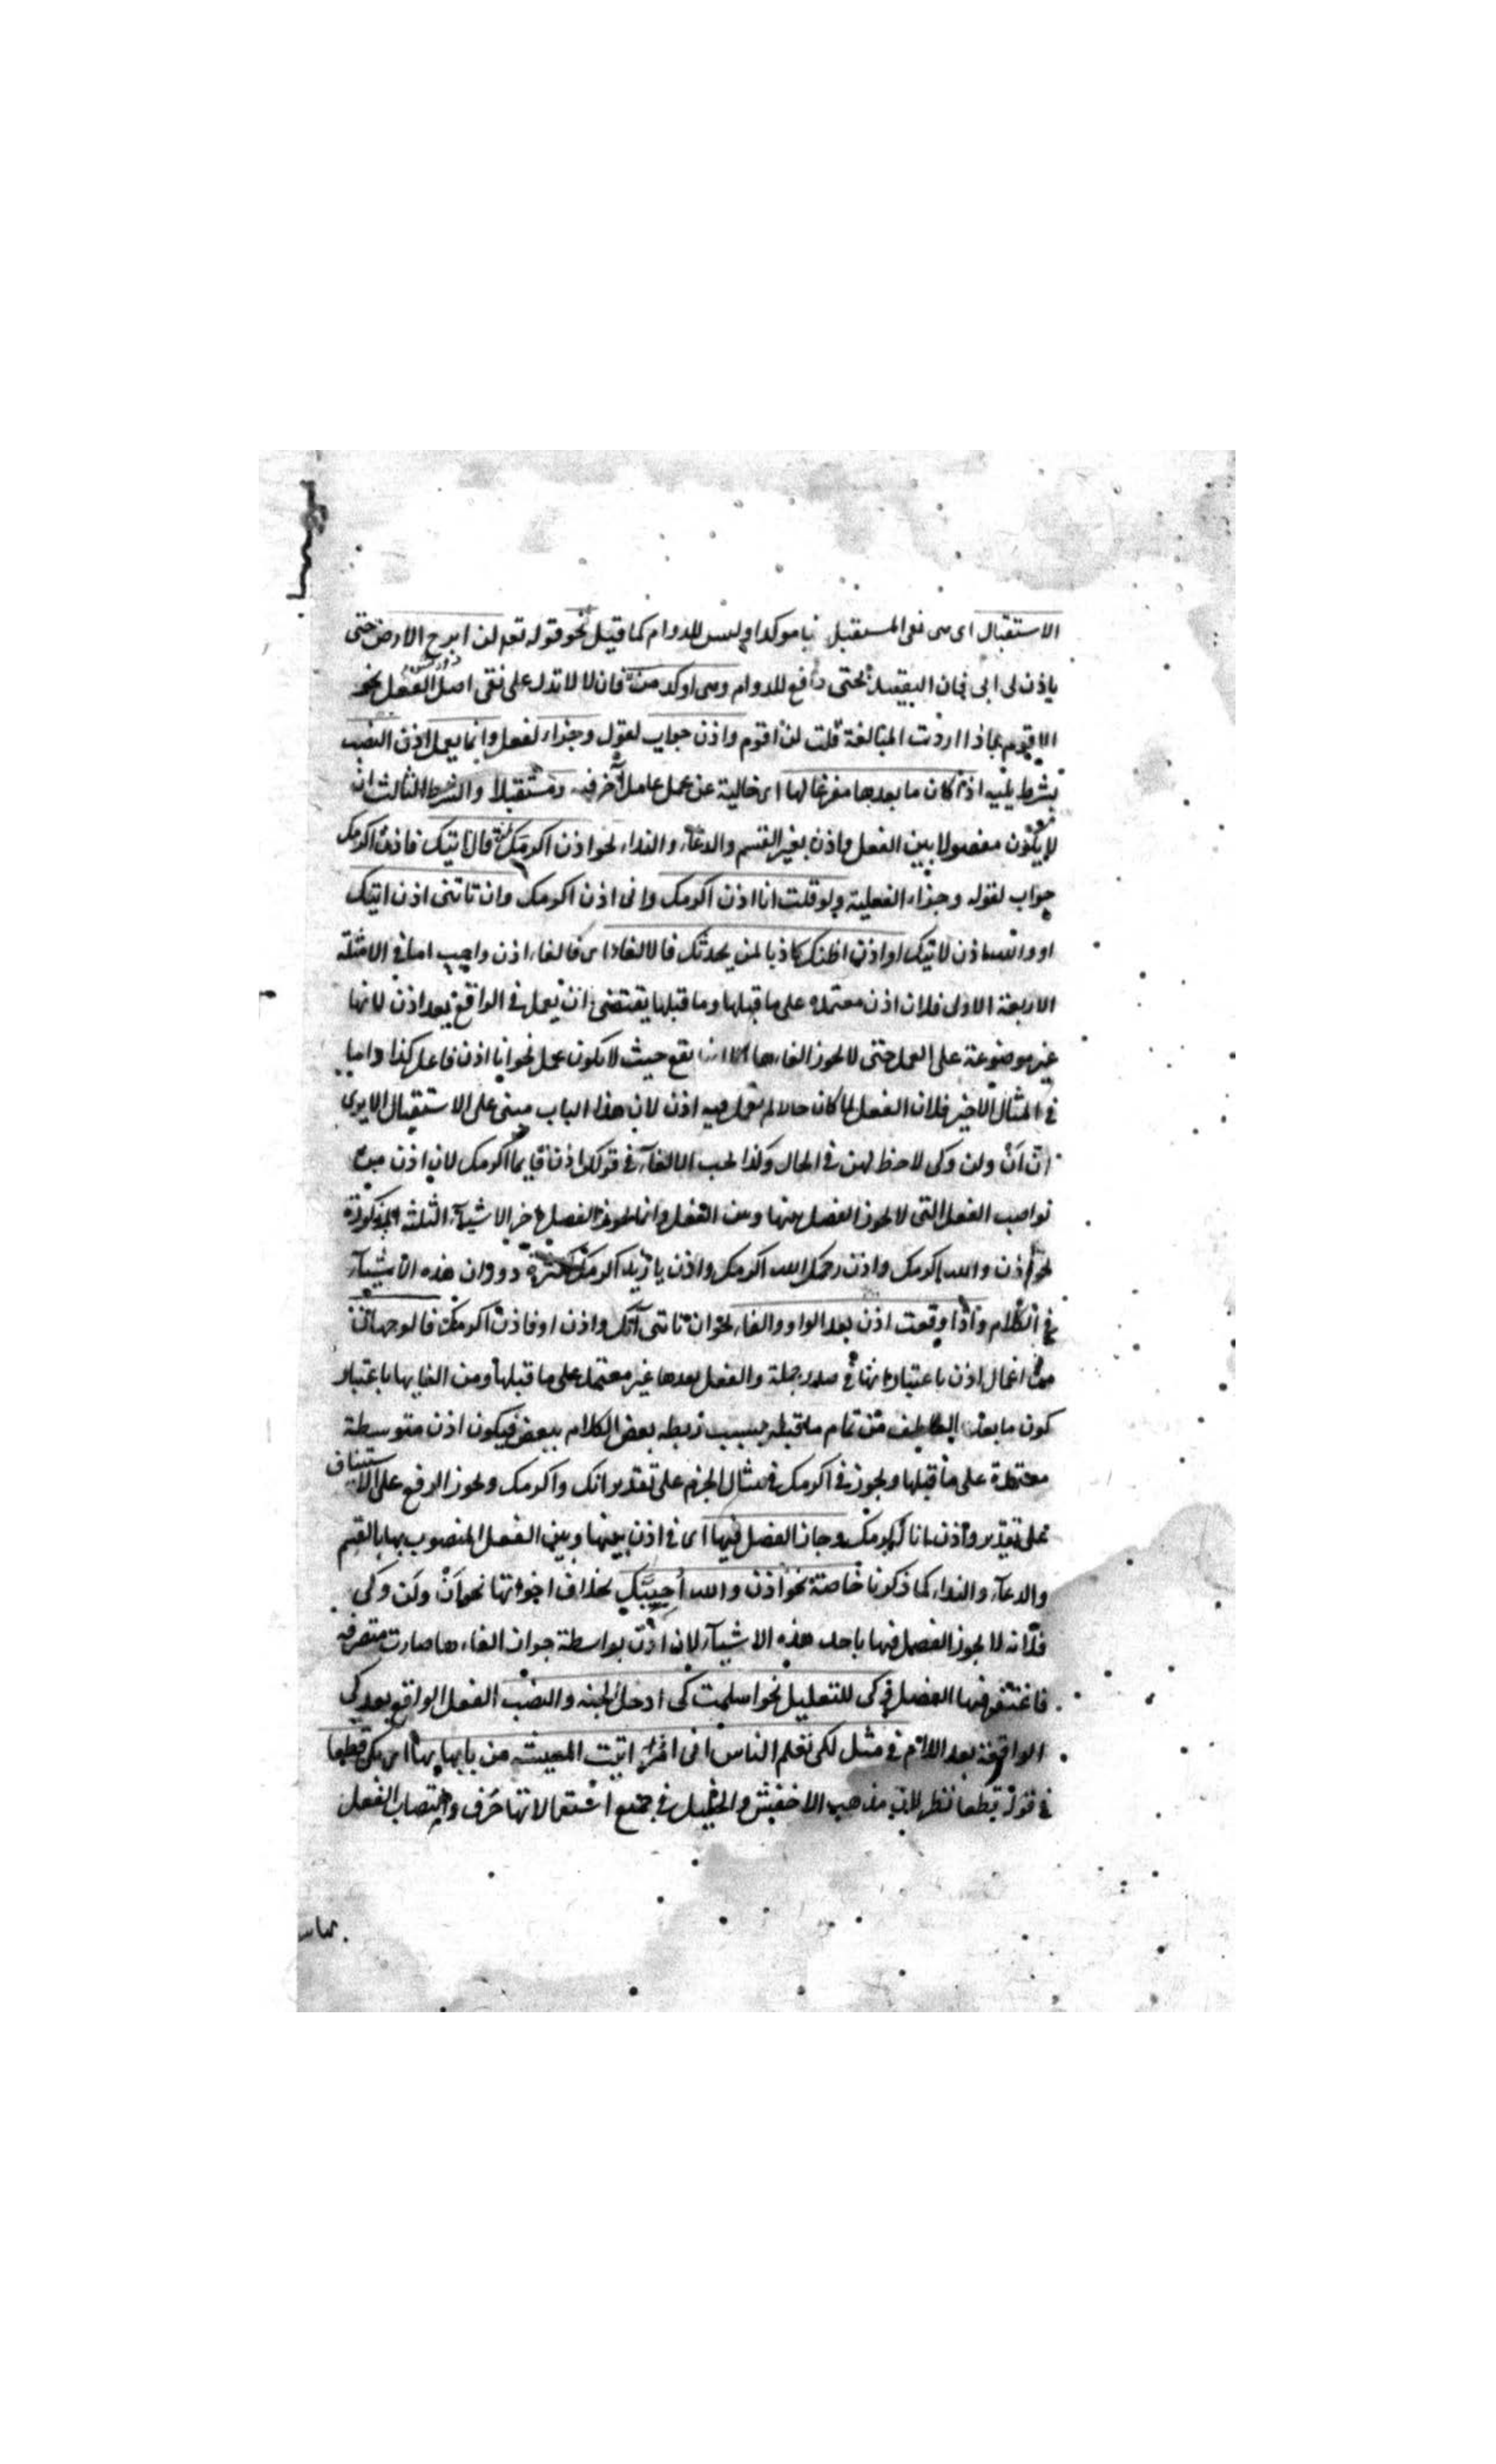 الاستقبال اى هى نفى المستقبل نفيا موكدا وليس للدوام كما قيل نحو قوله تعه لن ابرح الارض حتى
ياذن لى ابى فان التقييد بحتى دافع للدوام وهى اوكد من لا فان لا لا تدل على نفى اصل الفعل نحو
لا اقوم فاذا اردت المبالغة قلت لن اقوم واذن جواب لقول وجزاء لفعل وانما يعمل اذن النصب
بشرط يليه اذا كان ما بعدها مفرغا لها اى خالية عن عمل عامل آخر فيه ومستقبلا والشرط الثالث ان
لا يكون مفصولا بين الفعل واذن بغير القسم والدعاء والنداء نحو اذن اكرمك لمن قال اتيك فاذن اكرمك
جواب لقوله وجزاء لفعله ولو قلت انا اذن اكرمك وانى اذن اكرمك وان تاتنى اذن اتيك
او والله اذن لاتيك او اذن اظنك كاذبا لمن يحدثك فالالغاء اى فالغاء اذن واجب اما فى الامثلة
الاربعة الاولى فلان اذن معتمدة على ما قبلها وما قبلها يقتضى ان يعمل فى الواقع بعد اذن لانها
غير موضوعة على العمل حتى لا يجوز الغاءها الا انها تقع حيث لا يكون عمل نحو انا اذن فاعل كذا واما
فى المثال الاخير فلان الفعل لما كان حالا لم تعمل فيه اذن لان هذا الباب مبنى على الاستقبال الا يرى
ان اَنْ ولن وكى لا حظ لهن فى الحال وكذا يجب الالغاء فى قولك اذن قايما اكرمك لان اذن من
نواصب الفعل التى لا يجوز الفصل بينها وبين الفعل وانما يجوز الفصل بالاشياء الثلثة المذكورة
نحو اذن والله اكرمك واذن رحمك الله اكرمك واذن يا زيد اكرمك لكثرة دوران هذه الاشياء
فى الكلام واذا وقعت اذن بعد الواو والفاء نحو ان تاتنى آتك واذن او فاذن اكرمك فالوجهان
من اعمال اذن باعتبار انها فى صدر جملة والفعل بعدها غير معتمد على ما قبلها ومن الغايها باعتبار
كون ما بعد العاطف من تمام ما قبله بسبب ربطه بعض الكلام ببعض فيكون اذن متوسطة
معتمدة على ما قبلها ويجوز فى اكرمك فى مثال الجزم على تقدير اتك واكرمك ويجوز الرفع على الاستيناف
على تقدير واذن انا اكرمك وجاز الفصل فيها اى فى اذن بينها وبين الفعل المنصوب بها بالقسم
والدعاء والنداء كما ذكرنا خاصة نحو اذن والله اُحِبَّك بخلاف اخواتها نحو اَنْ ولَن وكى
فانه لا يجوز الفصل فيها باحد هذه الاشياء لان اذن بواسطة جواز الغاءها صارت متصرفة
فاغتفر فيها الفصل وكى للتعليل نحو اسلمت كى ادخل الجنة والنصب الفعل الواقع بعد كى
الواقعة بعد اللام فى مثل لكى تعلم الناس انى امرؤ اتيت المعيشة من بابها بها اى بكى قطعا
فى قوله قطعا نظر لان مذهب الاخفش والخليل فى جميع استعمالاتها حرف وانتصاب الفعل